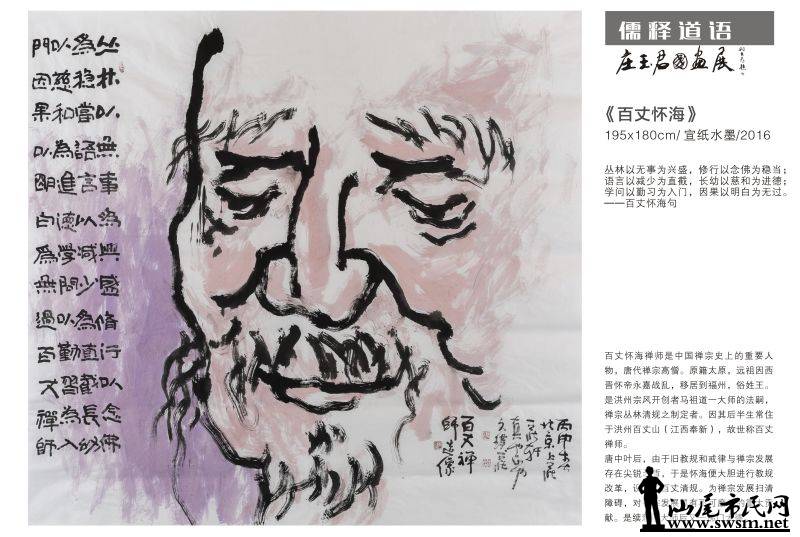 丛林以無事為興盛脩行以念佛
為稳當語言以減少為直截長幼
以慈和為進德學問以勤習為入
門因果以明白為無過百丈禪師
百丈禪
師造像
丙申
北京上苑
儒释道语
庄玉君國畫展
《百丈怀海》
195x180cm/ 宣纸水墨/2016
丛林以无事为兴盛，修行以念佛为稳当；
语言以减少为直截，长幼以慈和为进德；
学问以勤习为入门，因果以明白为无过。
——百丈怀海句
百丈怀海禅师是中国禅宗史上的重要人
物，唐代禅宗高僧。原籍太原，远祖因西
晋怀帝永嘉战乱，移居到福州，俗姓王。
是洪州宗风开创者马祖道一大师的法嗣，
禅宗丛林清规之制定者。因其后半生常住
于洪州百丈山（江西奉新），故世称百丈
禅师。
唐中叶后，由于旧教规和戒律与禅宗发展
存在尖锐，于是怀海便大胆进行教规
改革，百丈清规。为禅宗发展扫清
障碍，对
献。是续
汕尾市民网
www.swsm.net